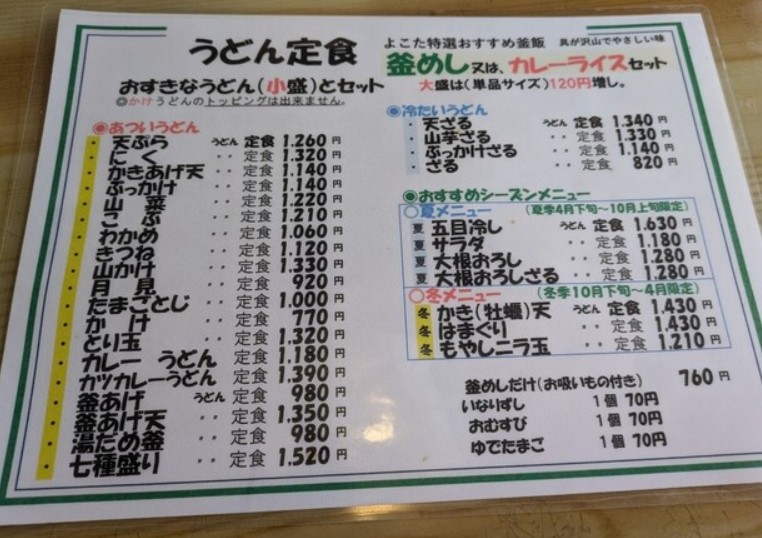 うどん定食
おすきなうどん(小盛)とセット
◎かけうどんのトッピングは出来ません。
よこた特選おすすめ釜飯 具が沢山でやさしい味
釜めし又は、カレーライスセット
大盛は(単品サイズ)120円増し。
◎あついうどん
・天ぷら うどん 定食 1.260円
・にく ・・ 定食 1.320円
・かきあげ天 ・・ 定食 1.140円
・ぶっかけ ・・ 定食 1.140円
・山菜 ・・ 定食 1.220円
・こぶ ・・ 定食 1.210円
・わかめ ・・ 定食 1.060円
・きつね ・・ 定食 1.120円
・山かけ ・・ 定食 1.330円
・月見 ・・ 定食 920円
・たまごとじ ・・ 定食 1.000円
・かけ ・・ 定食 770円
・とり玉 ・・ 定食 1.320円
・カレー うどん 定食 1.180円
・カツカレーうどん 定食 1.390円
・釜あげ うどん 定食 980円
・釜あげ天 ・・ 定食 1.350円
・湯だめ釜 ・・ 定食 980円
・七種盛り ・・ 定食 1.520円
◎冷たいうどん
・天ざる うどん 定食 1.340円
・山芋ざる ・・ 定食 1.330円
・ぶっかけざる ・・ 定食 1.140円
・ざる ・・ 定食 820円
◎おすすめシーズンメニュー
○夏メニュー (夏季4月下旬〜10月上旬限定)
夏 五目冷し うどん 定食 1.630円
夏 サラダ ・・ 定食 1.180円
夏 大根おろし ・・ 定食 1.280円
夏 大根おろしざる ・・ 定食 1.280円
○冬メニュー (冬季10月下旬〜4月限定)
冬 かき(牡蠣)天 うどん 定食 1.430円
冬 はまぐり ・・ 定食 1.430円
冬 もやしニラ玉 ・・ 定食 1.210円
釜めしだけ(お吸いもの付き) 760円
いなりずし 1個 70円
おむすび 1個 70円
ゆでたまご 1個 70円